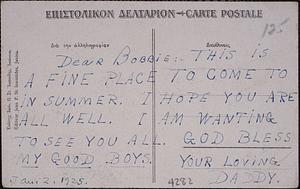 ΕΠΙΣΤΟΛΙΚΟΝ ΔΕΛΤΑΡΙΟΝ—CARTE POSTALE
125
Διὰ τὴν ἀλληλογραφίαν
Dear Bobbie:. THIS IS
A FINE PLACE TO COME TO
IN SUMMER. I HOPE YOU ARE
ALL WELL. I AM WANTING
TO SEE YOU ALL. GOD BLESS
MY GOOD BOYS. YOUR LOVING
Jan 2. 1925. 4282 DADDY.